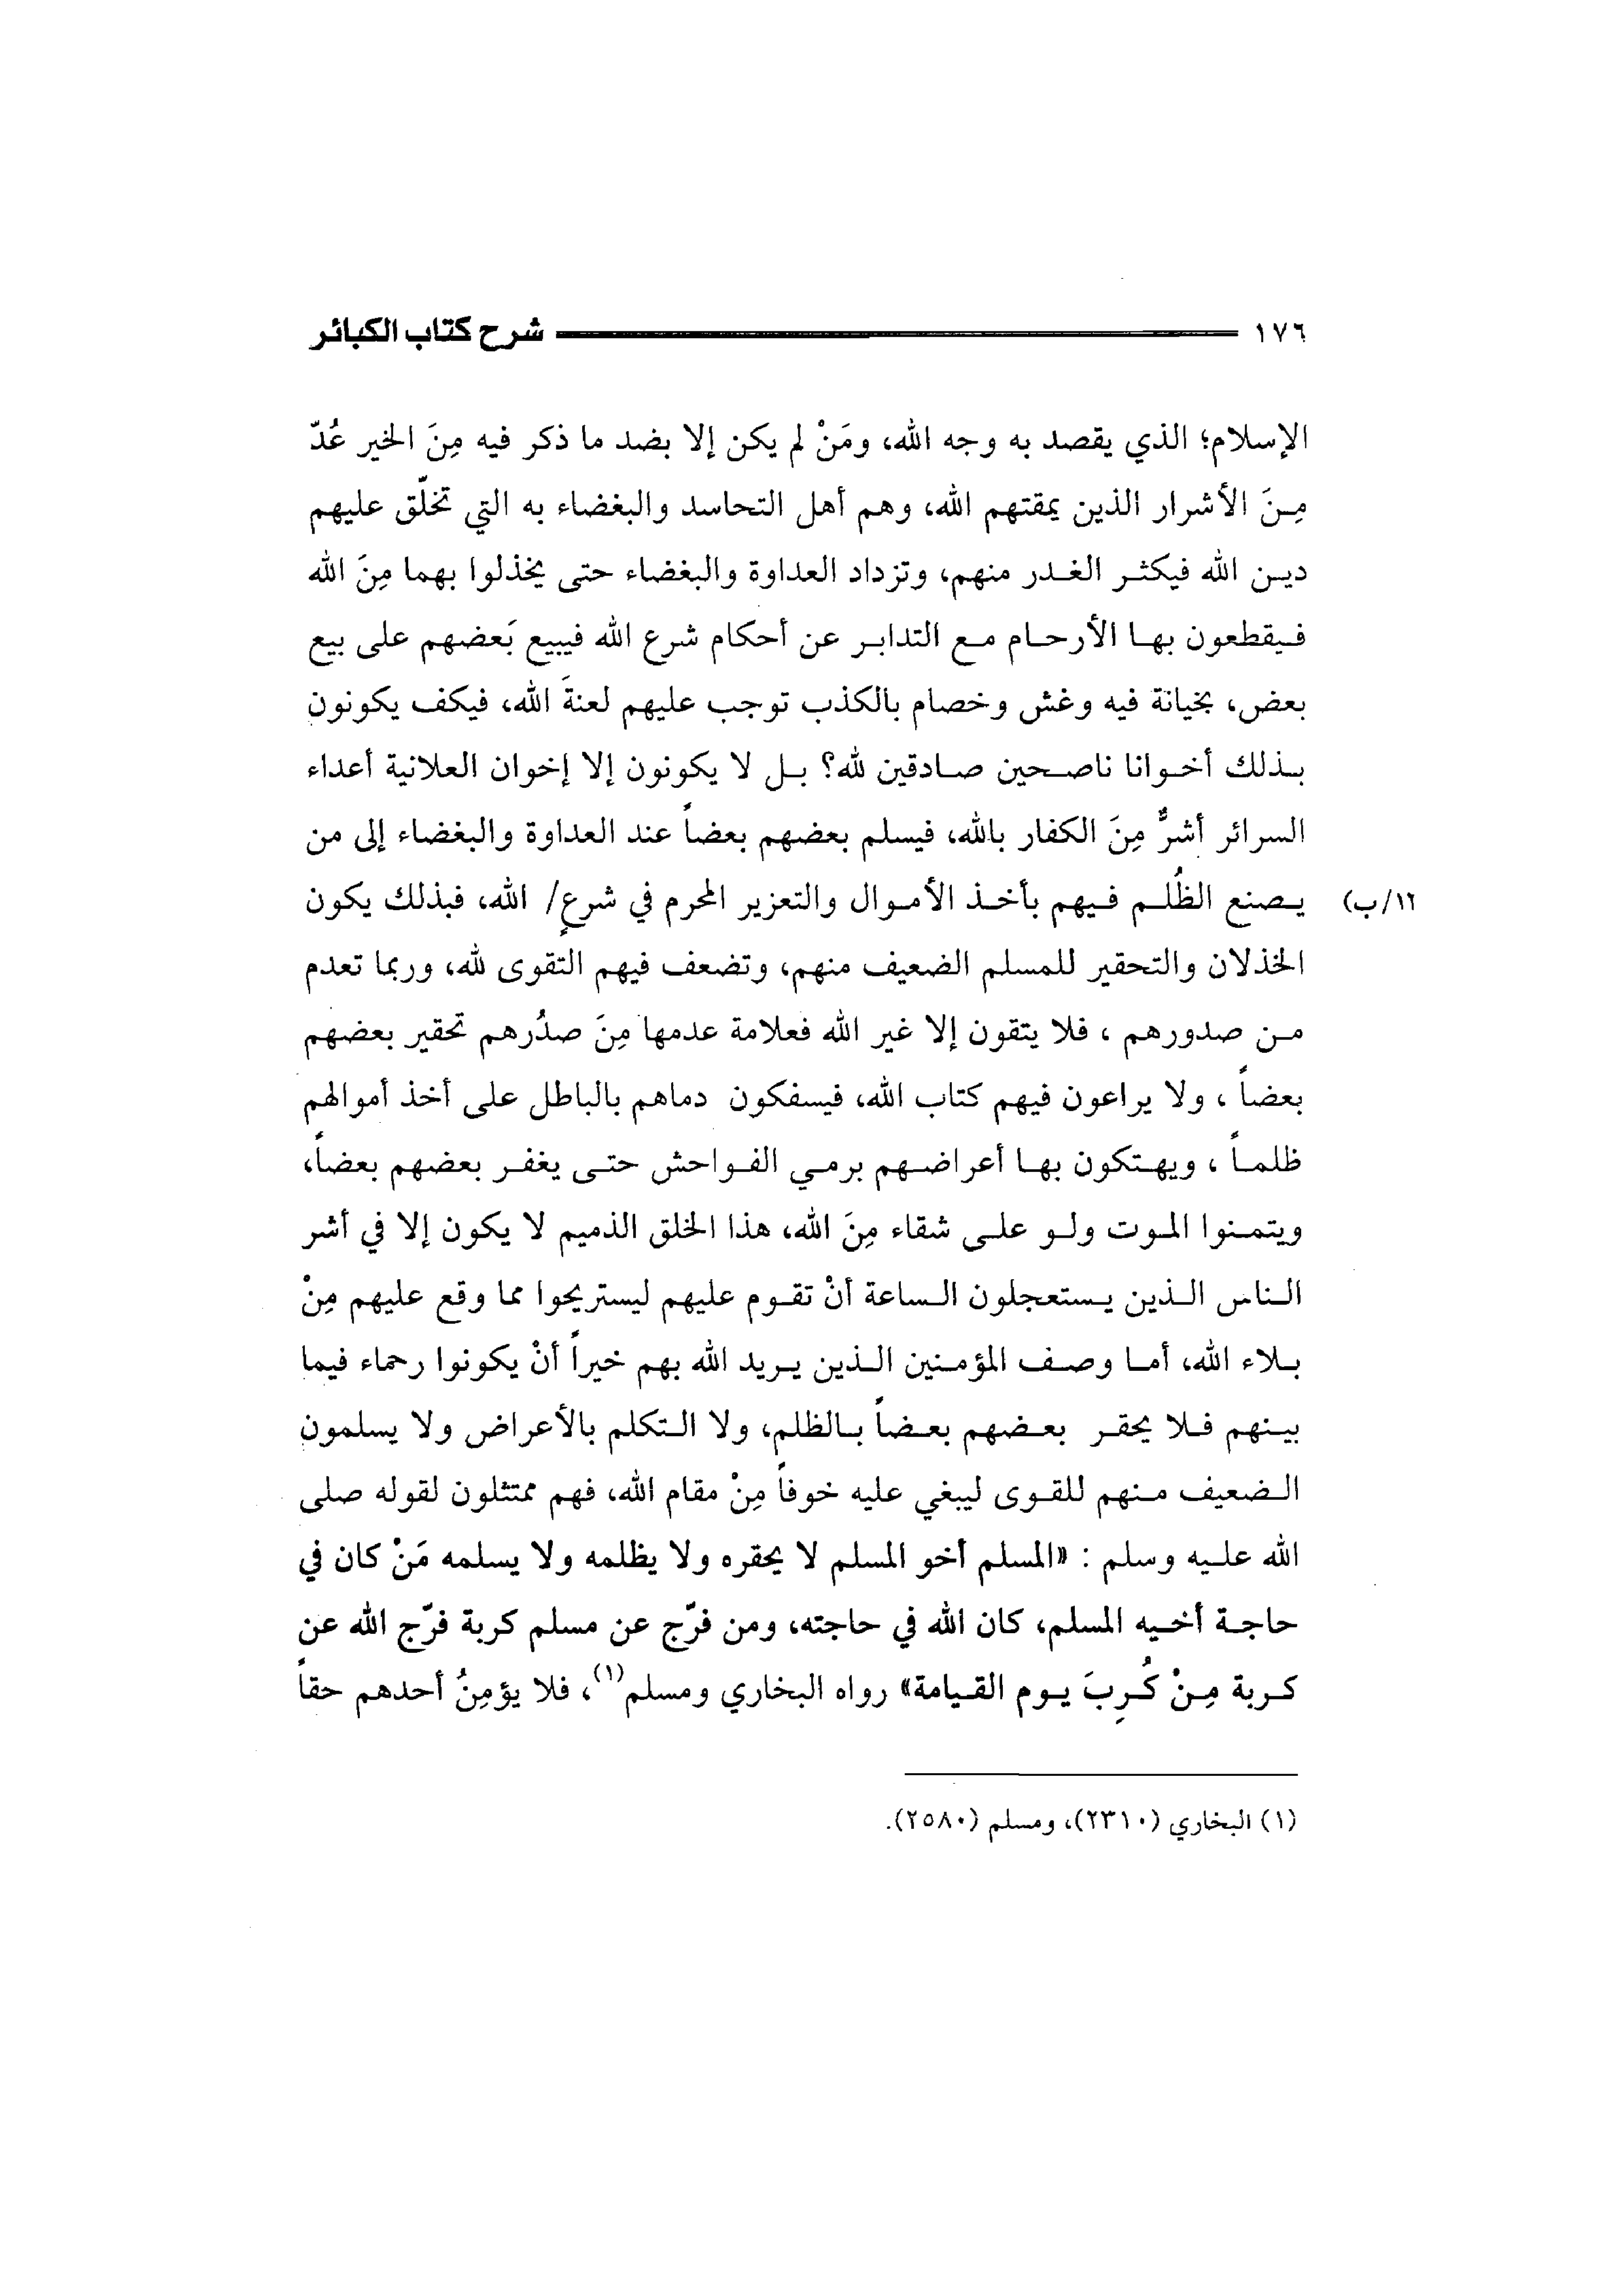 ١٧٦ شرح كتاب الكبائر
الإسلام؛ الذي يقصد به وجه الله، ومَنْ لم يكن إلا بضد ما ذكر فيه مِنَ الخير عُدّ
مِنَ الأشرار الذين يمقتهم الله، وهم أهل التحاسد والبغضاء به التي تخلّق عليهم
دين الله فيكثر الغدر منهم، وتزداد العداوة والبغضاء حتى يخذلوا بهما مِنَ الله
فيقطعون بها الأرحام مع التدابر عن أحكام شرع الله فيبيع بَعضهم على بيع
بعض، بخيانة فيه وغش وخصام بالكذب توجب عليهم لعنةَ الله، فيكف يكونون
بذلك أخوانا ناصحين صادقين لله؟ بل لا يكونون إلا إخوان العلانية أعداء
السرائر أشرٌّ مِنَ الكفار بالله، فيسلم بعضهم بعضاً عند العداوة والبغضاء إلى من
١٢/ب) يصنع الظُلم فيهم بأخذ الأموال والتعزير المحرم في شرعٍ/ الله، فبذلك يكون
الخذلان والتحقير للمسلم الضعيف منهم، وتضعف فيهم التقوى لله، وربما تعدم
من صدورهم ، فلا يتقون إلا غير الله فعلامة عدمها مِنَ صدُرهم تحقير بعضهم
بعضاً ، ولا يراعون فيهم كتاب الله، فيسفكون دماهم بالباطل على أخذ أموالهم
ظلماً ، ويهتكون بها أعراضهم برمي الفواحش حتى يغفر بعضهم بعضاً،
ويتمنوا الموت ولو على شقاء مِنَ الله، هذا الخلق الذميم لا يكون إلا في أشر
الناس الذين يستعجلون الساعة أنْ تقوم عليهم ليستريحوا مما وقع عليهم مِنْ
بلاء الله، أما وصف المؤمنين الذين يريد الله بهم خيراً أنْ يكونوا رحماء فيما
بينهم فلا يحقر بعضهم بعضاً بالظلم، ولا التكلم بالأعراض ولا يسلمون
الضعيف منهم للقوى ليبغي عليه خوفاً مِنْ مقام الله، فهم ممتثلون لقوله صلى
الله عليه وسلم : «المسلم أخو المسلم لا يحقره ولا يظلمه ولا يسلمه مَنْ كان في
حاجة أخيه المسلم، كان الله في حاجته، ومن فرّج عن مسلم كربة فرّج الله عن
كربة مِنْ كُرِبَ يوم القيامة» رواه البخاري ومسلم(١)، فلا يؤمِنُ أحدهم حقاً
(١) البخاري (٢٣١٠)، ومسلم (٢٥٨٠).